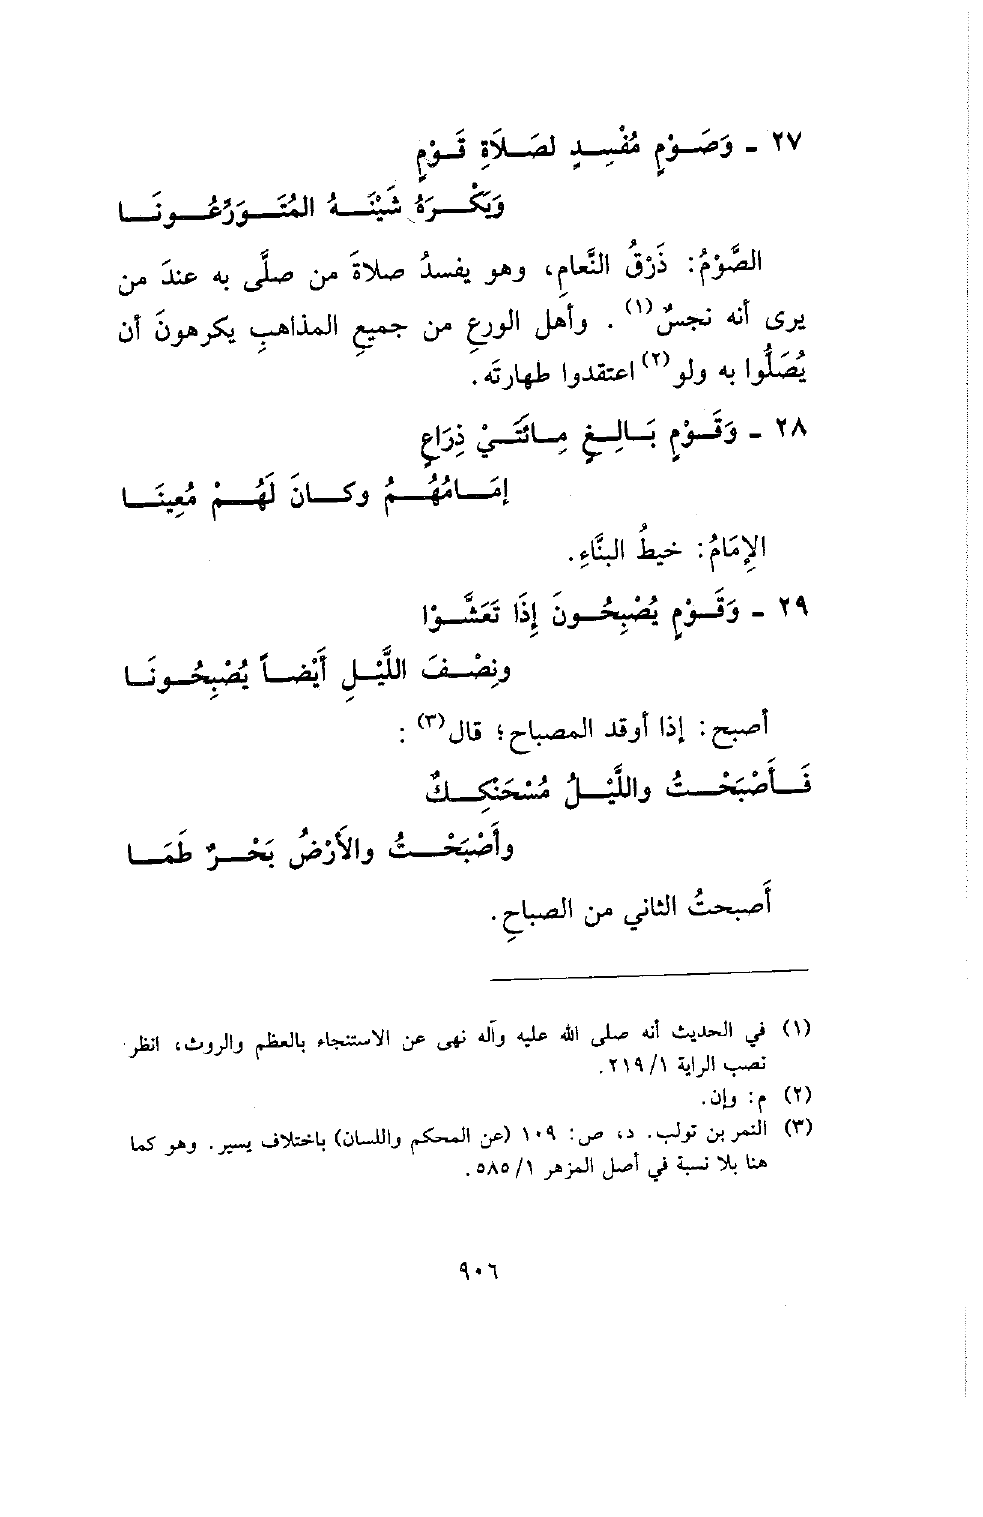 ٢٧ ـ وَصَوْمٍ مُفْسِدٍ لصَلَاةِ قَوْمٍ
وَيَكْرَهُ شَيْنَهُ المُتَوَرِّعُونَا
الصَّوْمُ: ذَرْقُ النَّعامِ، وهو يفسدُ صلاةَ من صلَّى به عندَ من
يرى أنه نجسٌ(١) . وأهل الورعِ من جميعِ المذاهبِ يكرهونَ أن
يُصَلُّوا به ولو(٢) اعتقدوا طهارتَه.
٢٨ ـ وَقَوْمٍ بَالِغٍ مِائَتَيْ ذِرَاعٍ
إمَامُهُمُ وكانَ لَهُمْ مُعِينَا
الإِمَامُ: خيطُ البنَّاءِ.
٢٩ ـ وَقَوْمٍ يُصْبِحُونَ إِذَا تَعَشَّوْا
ونِصْفَ اللَّيْلِ أَيْضاً يُصْبِحُونَا
أصبح: إذا أوقد المصباح؛ قال(٣) :
فَأَصْبَحْتُ واللَّيْلُ مُسْحَنْكِكٌ
وأَصْبَحْتُ والأَرْضُ بَحْرٌ طَمَا
أَصبحتُ الثاني من الصباحِ.
(١) في الحديث أنه صلى الله عليه وآله نهى عن الاستنجاء بالعظم والروث، انظر
نصب الراية ٢١٩/١.
(٢) م: وإن.
(٣) النمر بن تولب. د، ص: ١٠٩ (عن المحكم واللسان) باختلاف يسير. وهو كما
هنا بلا نسبة في أصل المزهر ٥٨٥/١.
٩٠٦